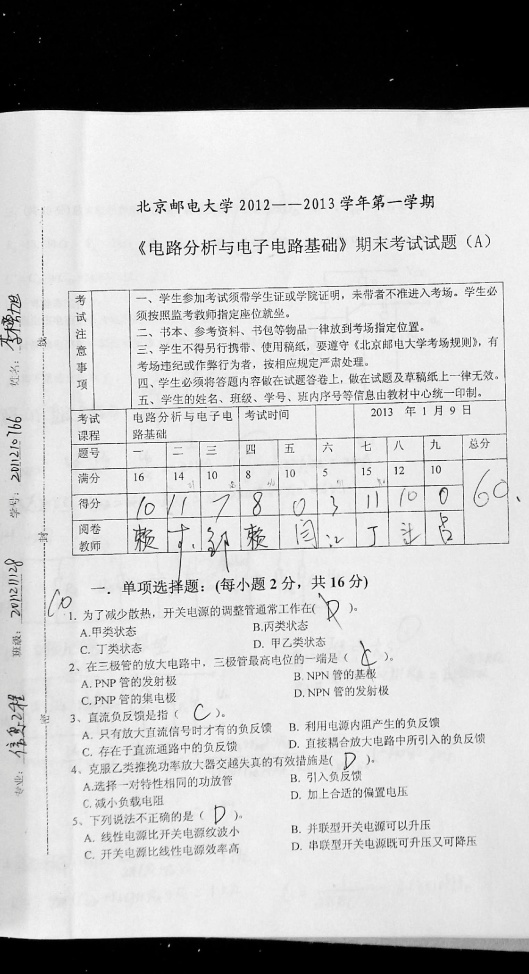 北京邮电大学2012——2013学年第一学期
《电路分析与电子电路基础》期末考试试题（A）
考试注意事项
一、学生参加考试须带学生证或学院证明，未带者不准进入考场。学生必
须按照监考教师指定座位就坐。
二、书本、参考资料、书包等物品一律放到考场指定位置。
三、学生不得另行携带、使用稿纸，要遵守《北京邮电大学考场规则》，有
考场违纪或作弊行为者，按相应规定严肃处理。
四、学生必须将答题内容做在试题答卷上，做在试题及草稿纸上一律无效。
五、学生的姓名、班级、学号、班内序号等信息由教材中心统一印制。
考试课程 电路分析与电子电路基础 考试时间 2013 年 1 月 9 日
题号 一 二 三 四 五 六 七 八 九 总分
满分 16 14 10 8 10 5 15 12 10
得分 10 11 7 8 0 3 11 10 0 60
阅卷教师 赖 丁
姓名：
学号：2011210766
班级：2011211128
专业：信息工程
一．单项选择题：(每小题 2 分，共 16 分)
10
1. 为了减少散热，开关电源的调整管通常工作在( D )。
A.甲类状态 B.丙类状态
C. 丁类状态 D. 甲乙类状态
2、在三极管的放大电路中，三极管最高电位的一端是（ ）。
A. PNP 管的发射极 B. NPN 管的基极
C. PNP 管的集电极 D. NPN 管的发射极
3、直流负反馈是指（ C ）。
A. 只有放大直流信号时才有的负反馈 B. 利用电源内阻产生的负反馈
C. 存在于直流通路中的负反馈 D. 直接耦合放大电路中所引入的负反馈
4、克服乙类推挽功率放大器交越失真的有效措施是( D )。
A.选择一对特性相同的功放管 B. 引入负反馈
C.减小负载电阻 D. 加上合适的偏置电压
5、下列说法不正确的是（ D ）。
A. 线性电源比开关电源纹波小 B. 并联型开关电源可以升压
C. 开关电源比线性电源效率高 D. 串联型开关电源既可升压又可降压